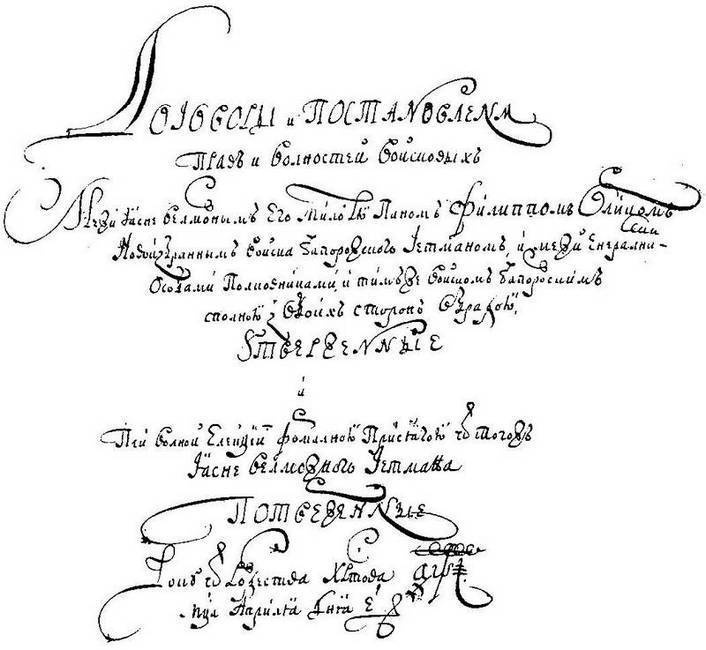 Договоры и Постановленѧ
Правъ и волностей войсковыхъ
Межи Ясне велможнымъ Его Милостю Паномъ Филиппомъ Орликомъ
Новоизбраннымъ войска Запорозского Гетманомъ, и межи Енералними
Особами Полковниками и тимъ же войскомъ Запорозскимъ
сполною з обоихъ сторонъ обрадою
Утверженныѣ
и
При волной Елекціи формалною Присягою ѿ тогожъ
Ясне велможного Гетмана
Потверженныѣ
Року ѿ Рожества Христова ҂аѱі
Мсца Априля дня е҃